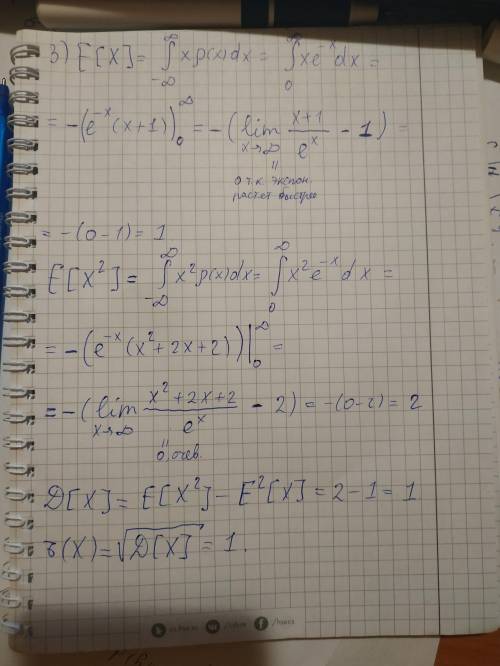 3) E[X] = ∫_{-∞}^{∞} x p(x) dx = ∫_{0}^{∞} x e^{-x} dx =
= -(e^{-x}(x+1)|_{0}^{∞} = -(lim_{x→∞} \frac{x+1}{e^x} - 1) =
"
0 т.к. экспон.
растет быстрее
= -(0-1) = 1
E[X^2] = ∫_{-∞}^{∞} x^2 p(x) dx = ∫_{0}^{∞} x^2 e^{-x} dx =
= -(e^{-x}(x^2+2x+2))|_{0}^{∞} =
= -(lim_{x→∞} \frac{x^2+2x+2}{e^x} - 2) = -(0-2) = 2
"
0, очев.
D[X] = E[X^2] - E^2[X] = 2-1 = 1
σ(X) = \sqrt{D[X]} = 1.